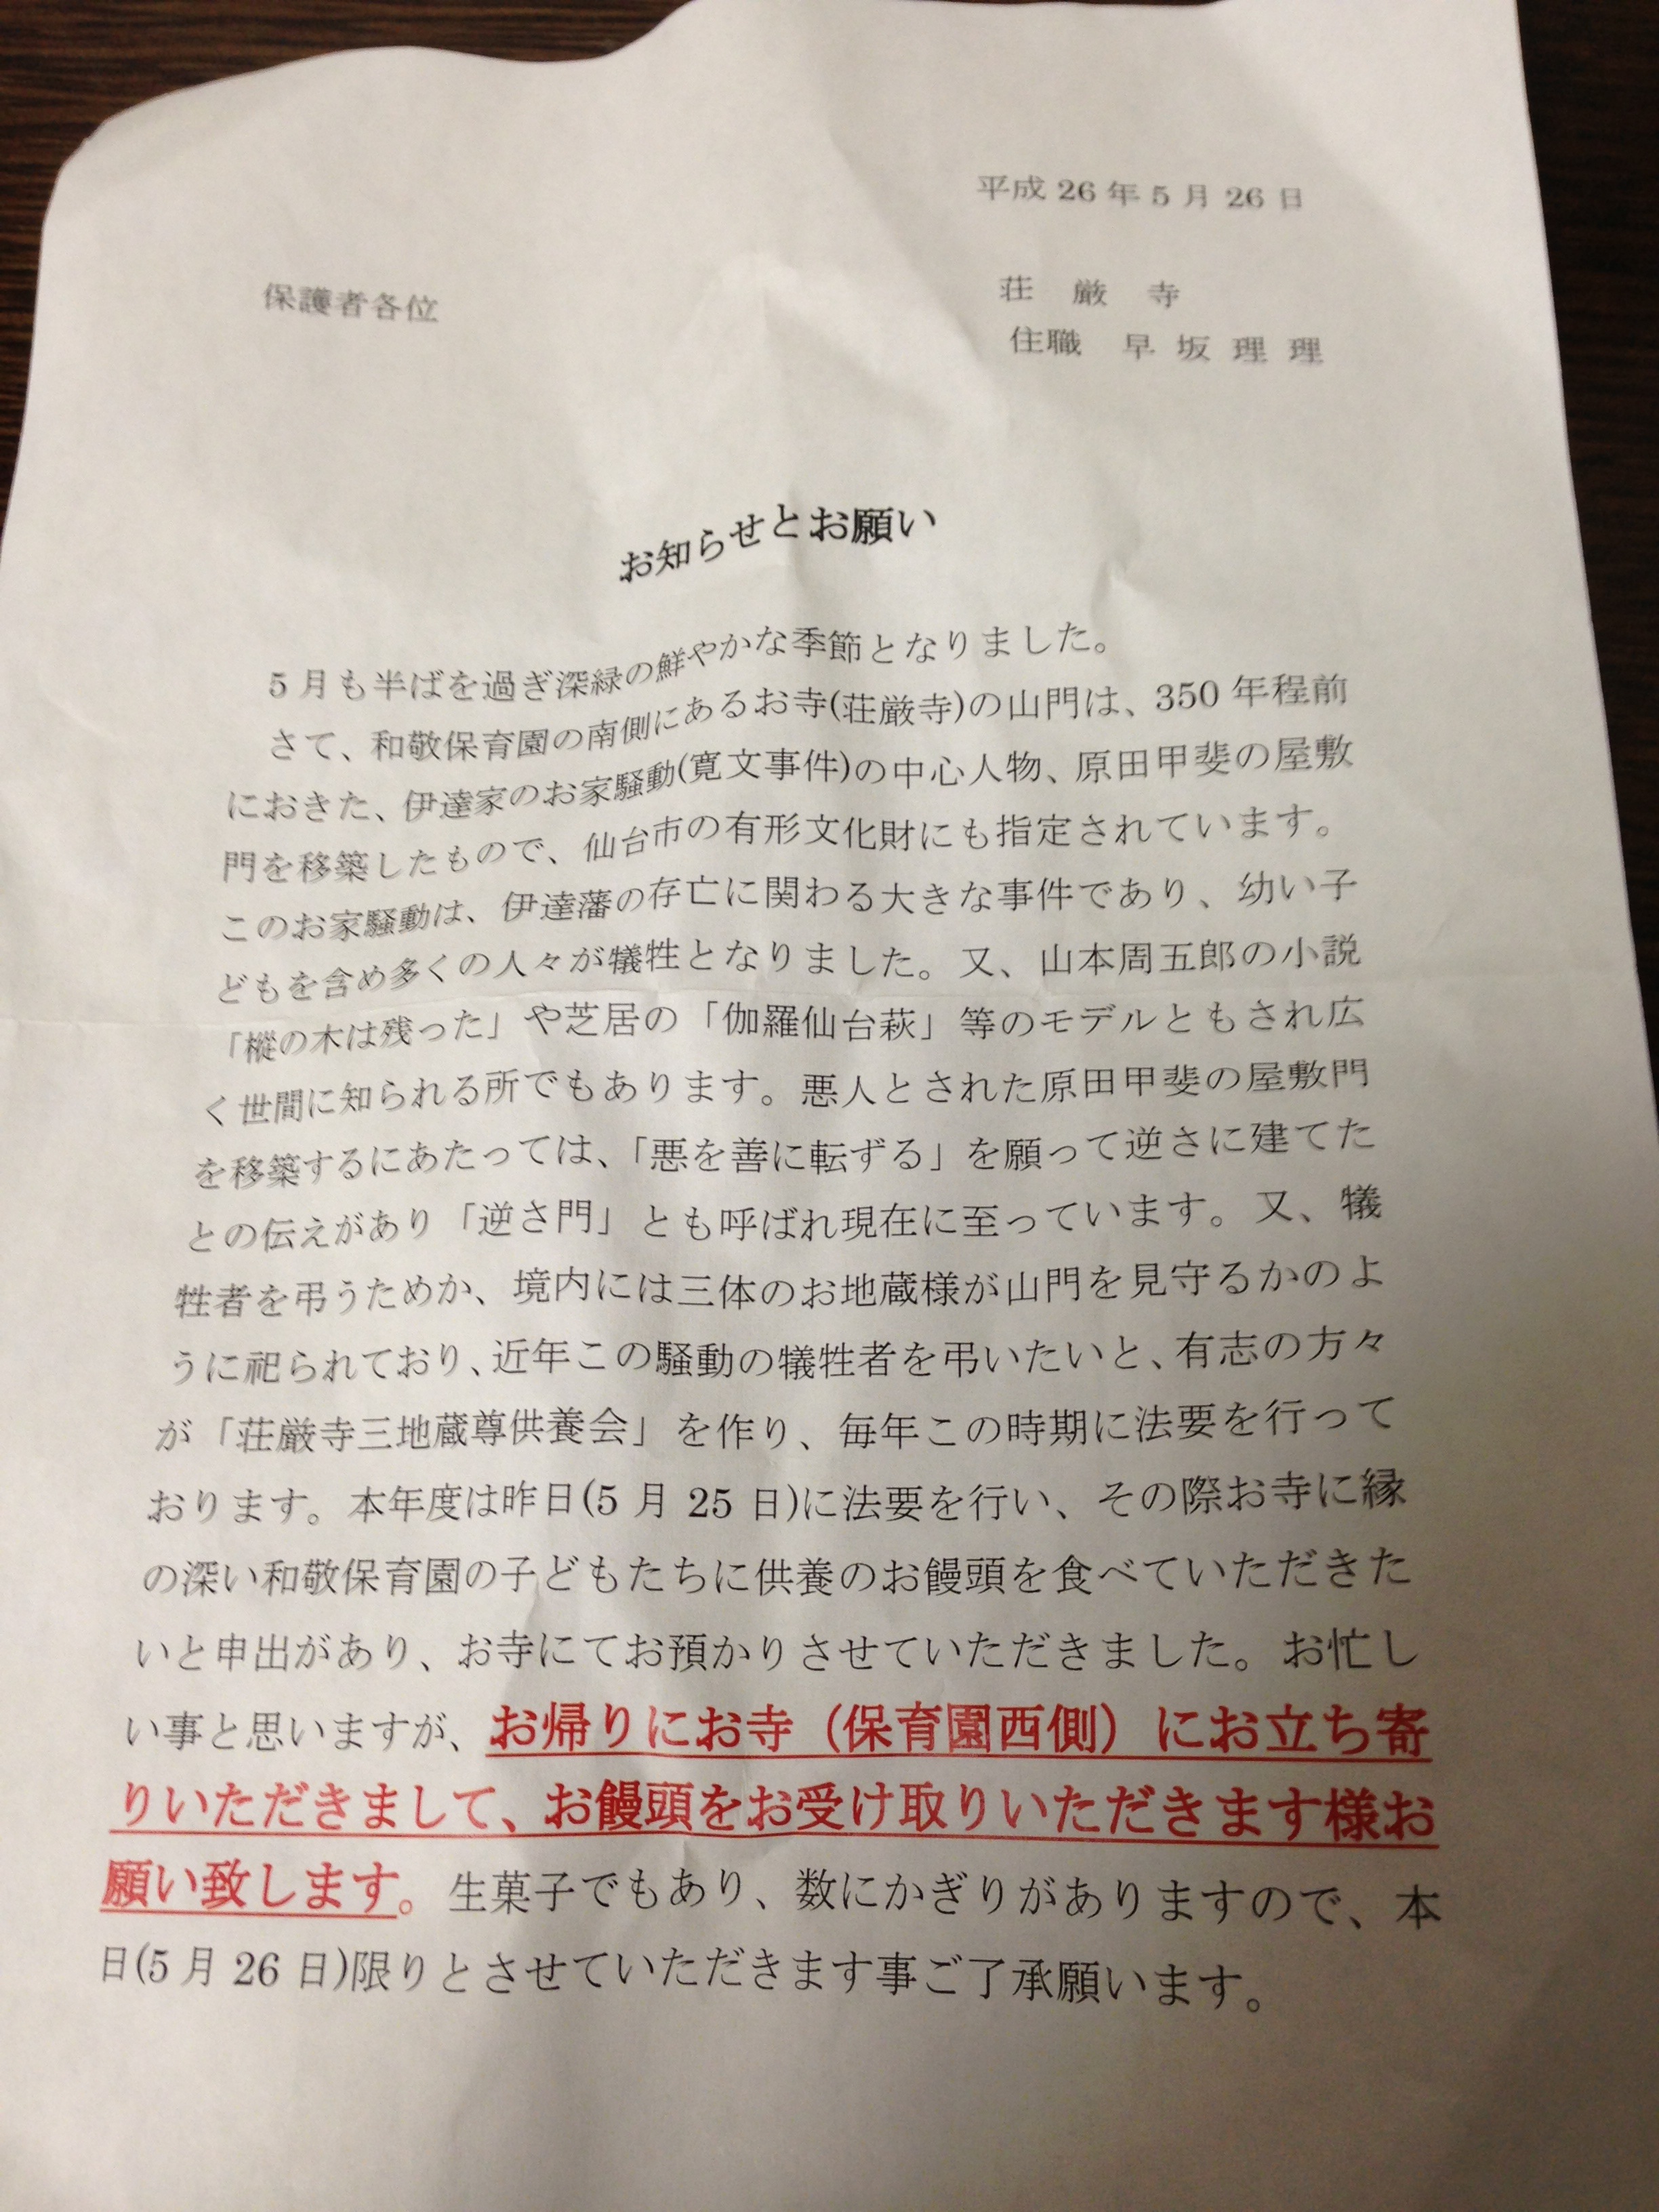 平成 26 年 5 月 26 日
保護者各位
荘 厳 寺
住職 早 坂 理 理
お知らせとお願い
5月も半ばを過ぎ深緑の鮮やかな季節となりました。
さて、和敬保育園の南側にあるお寺(荘厳寺)の山門は、350 年程前
におきた、伊達家のお家騒動(寛文事件)の中心人物、原田甲斐の屋敷
門を移築したもので、仙台市の有形文化財にも指定されています。
このお家騒動は、伊達藩の存亡に関わる大きな事件であり、幼い子
どもを含め多くの人々が犠牲となりました。又、山本周五郎の小説
「樅の木は残った」や芝居の「伽羅仙台萩」等のモデルともされ広
く世間に知られる所でもあります。悪人とされた原田甲斐の屋敷門
を移築するにあたっては、「悪を善に転ずる」を願って逆さに建てた
との伝えがあり「逆さ門」とも呼ばれ現在に至っています。又、犠
牲者を弔うためか、境内には三体のお地蔵様が山門を見守るかのよ
うに祀られており、近年この騒動の犠牲者を弔いたいと、有志の方々
が「荘厳寺三地蔵尊供養会」を作り、毎年この時期に法要を行って
おります。本年度は昨日(5 月 25 日)に法要を行い、その際お寺に縁
の深い和敬保育園の子どもたちに供養のお饅頭を食べていただきた
いと申出があり、お寺にてお預かりさせていただきました。お忙し
い事と思いますが、お帰りにお寺（保育園西側）にお立ち寄
りいただきまして、お饅頭をお受け取りいただきます様お
願い致します。生菓子でもあり、数にかぎりがありますので、本
日(5 月 26 日)限りとさせていただきます事ご了承願います。